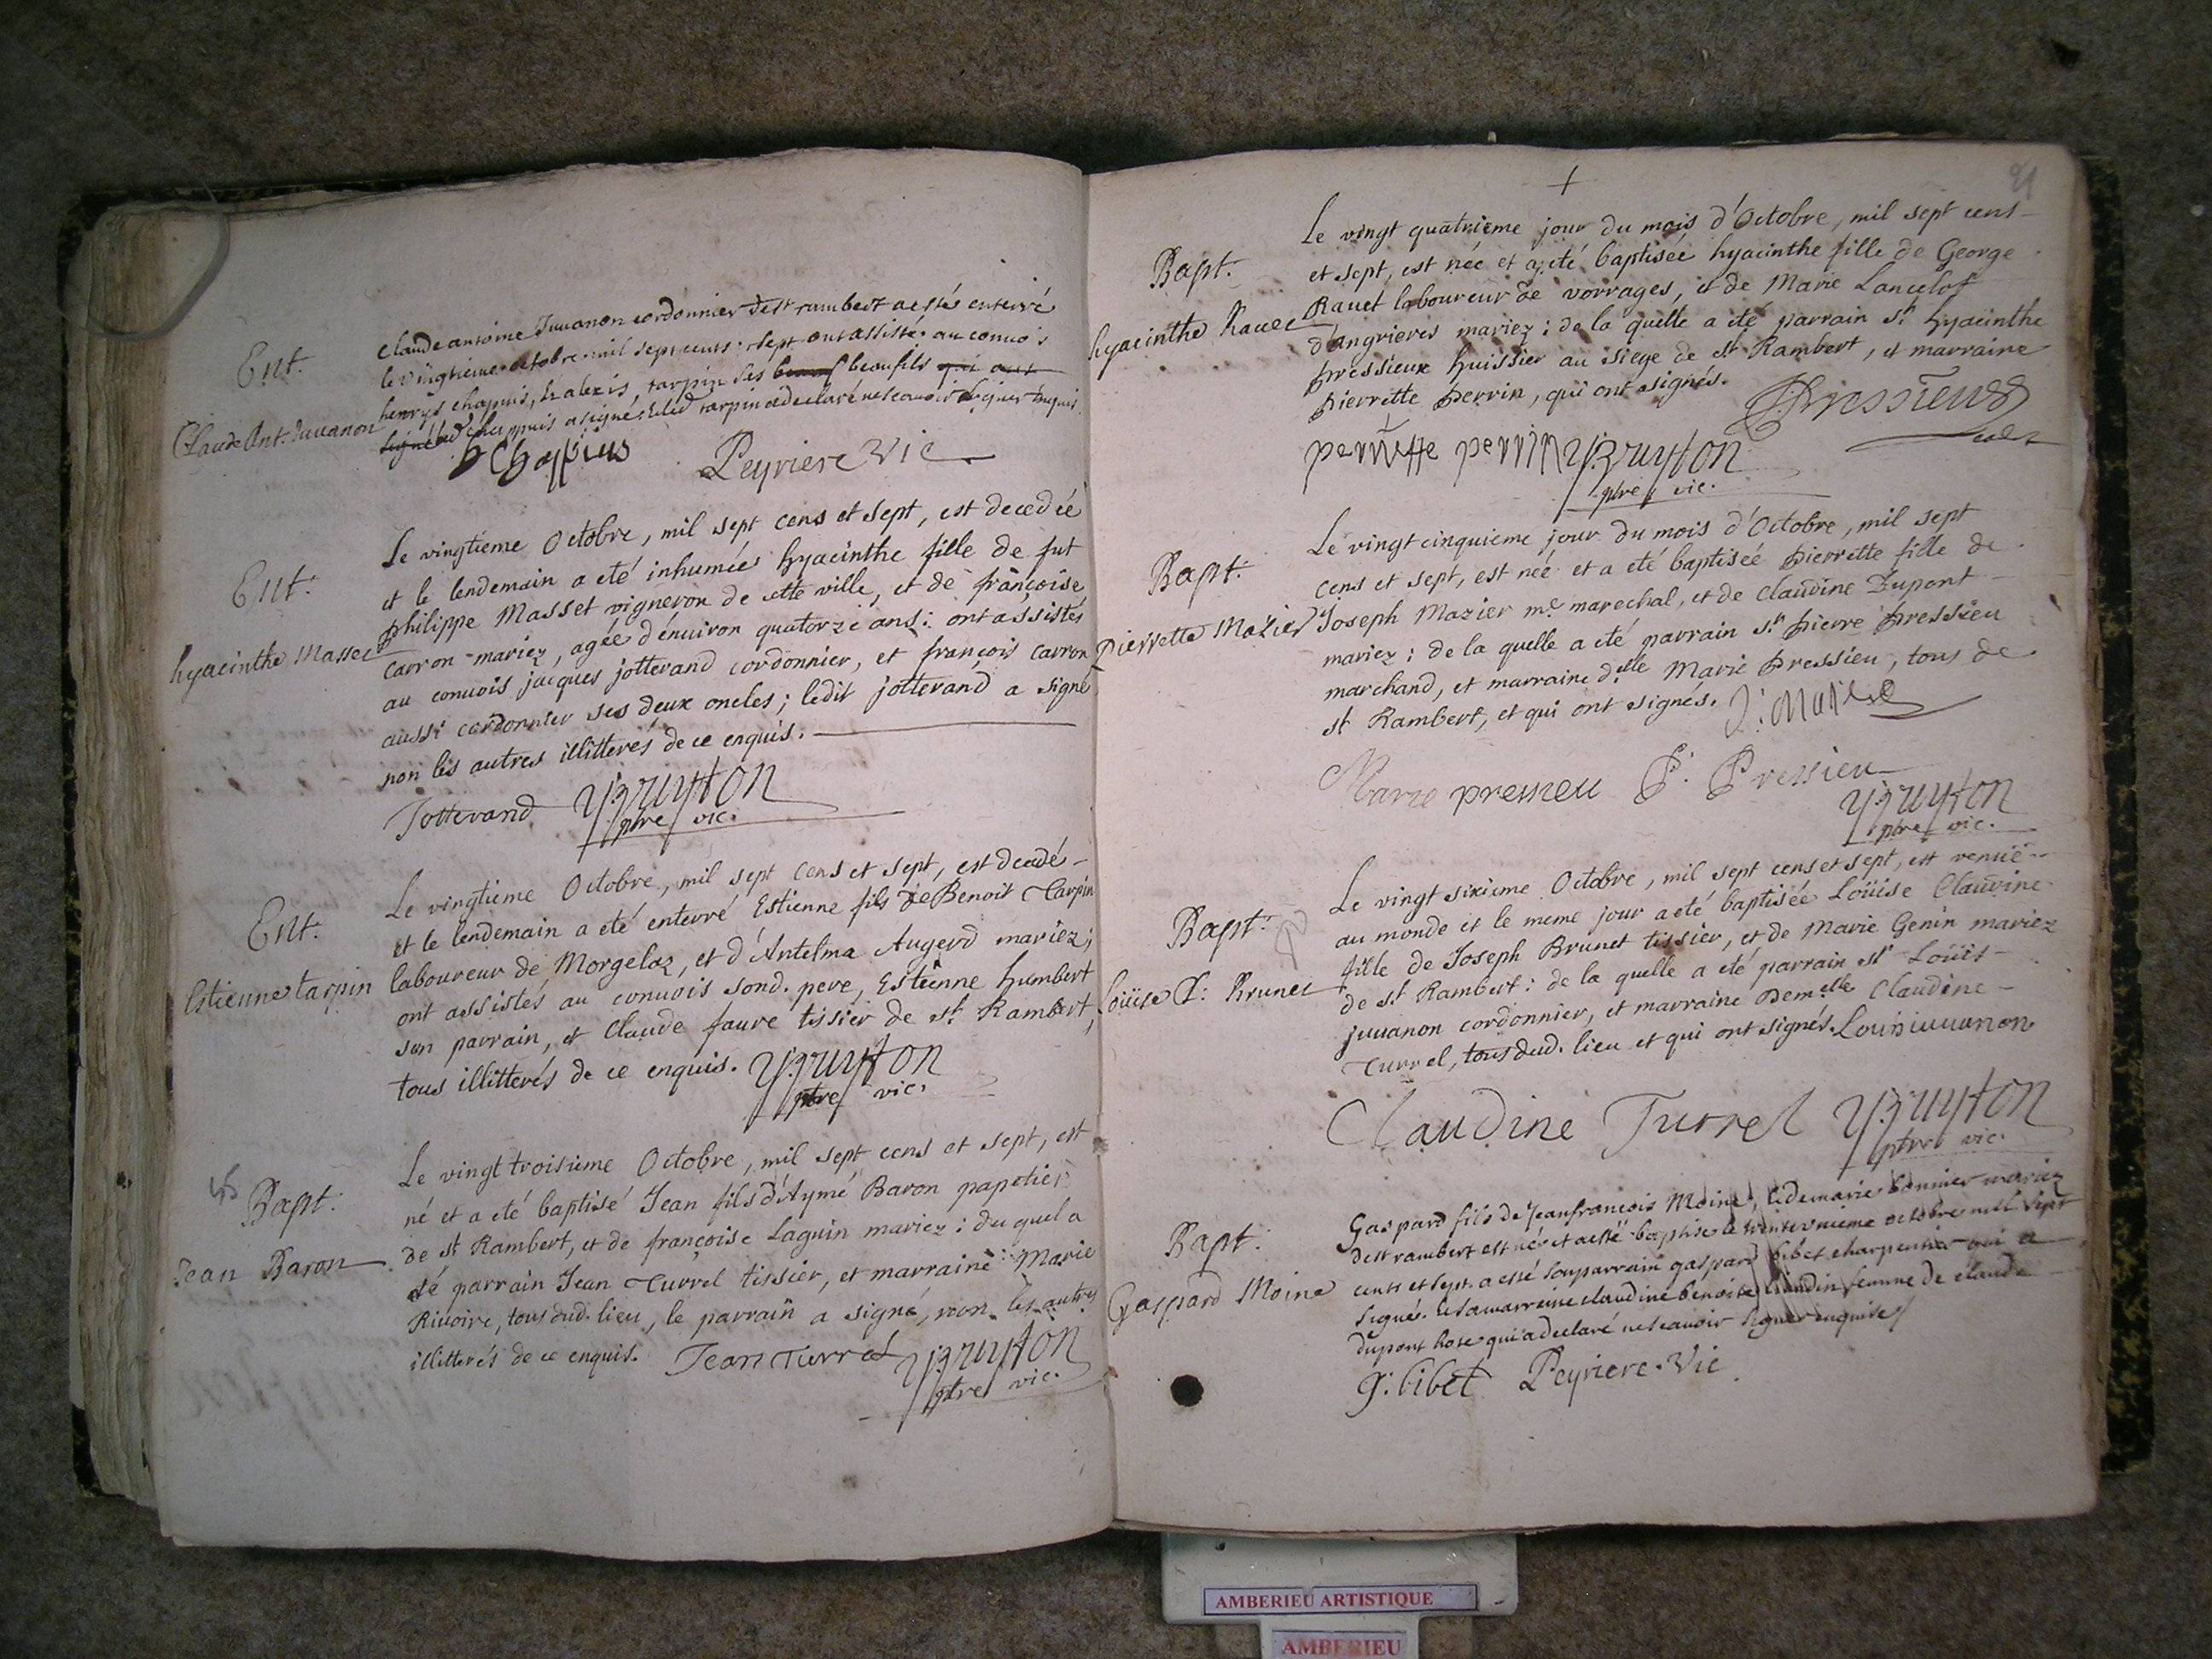 Ent.
Claude Ant. Juuanon
Claude antoine Juuanon cordonnier de st rambert a estés enterré
le vingtieme octobre mil sept cents sept ont assistés au conuois
henrys chapuis, et alexis, tarpin ses beaufils qui ont
signé led chappuis a signé et led tarpin a declaré ne scauoir signer enquis
h Chappius Peyriere Vic
Ent.
hyacinthe Masset
Le vingtieme Octobre, mil sept cens et sept, est decedeé
et le lendemain a eté inhumeé hyacinthe fille de fut
philippe Masset vigneron de cette ville, et de françoise
Carron mariez, agée d'enuiron quatorze ans: ont assistés
au conuois jacques jotterand cordonnier, et françois Carron
aussi cordonnier ses deux oncles; ledit jotterand a signé
non les autres illitterés de ce enquis.
Jotterand Bruyton
ptre vic.
Ent.
Estienne tarpin
Le vingtieme Octobre, mil sept cens et sept, est decedé
et le lendemain a eté enterré Estienne fils de Benoit Tarpin
laboureur de Morgelaz, et d'Antelma Augerd mariez;
ont assistés au conuois sond. pere, Estienne humbert
son parrain, et Claude faure tissier de st Rambert,
tous illitterés de ce enquis. Bruyton
ptre vic.
Bapt.
Jean Baron
Le vingt troisieme Octobre, mil sept cens et sept, est
né et a eté baptisé Jean fils d'Aymé Baron papetier
de st Rambert, et de françoise Laguin mariez: du quel a
eté parrain Jean Turrel tissier, et marraine Marie
Riuoire, tous dud. lieu, le parrain a signé, non les autres
illitterés de ce enquis. Jean Turrel Bruyton
ptre vic.
+
91
Bapt.
hyacinthe Rauet
Le vingt quatrieme jour du mois d'Octobre, mil sept cens
et sept, est née et a eté baptiseé hyacinthe fille de George
Rauet laboureur de vorrages, et de Marie Lancelot
d'angrieres mariez: de la quelle a eté parrain sr hyacinthe
pressieux huissier au siege de st Rambert, et marraine
pierrette perrin, qui ont signés. Pressieux
perrette perrin Bruyton
ptre vic.
Bapt.
Pierrette Mazier
Le vingt cinquieme jour du mois d'Octobre, mil sept
cens et sept, est neé et a eté baptiseé pierrette fille de
Joseph Mazier me marechal, et de Claudine Dupont
mariez: de la quelle a eté parrain sr pierre pressieu
marchand, et marraine delle Marie pressieu, tous de
st Rambert, et qui ont signés. J: Mazier
Marie pressieu P. Pressieu
Bruyton
ptre vic.
Bapt.
Loüise C: Brunet
Le vingt sixieme Octobre, mil sept cens et sept, est venuë
au monde et le meme jour a eté baptisée Loüise Claudine
fille de Joseph Brunet tissier, et de Marie Genin mariez
de st Rambert: de la quelle a eté parrain sr Loüis
juuanon cordonnier, et marraine Demelle Claudine
Turrel, tous dud. lieu et qui ont signés. Louis iuuanon
Claudine Turrel Bruyton
ptre vic.
Bapt.
Gaspard Moine
Gaspard fils de Jeanfrancois Moine, et de marie bonnier mariez
de st rambert est né et a esté baptise le octobre mil sept
cents et sept. a esté son parrain gaspard bibet charpentier qui a
signé. et sa marreine claudine benoite femme de claude
dupont hote qui a declaré ne scauoir signer enquise
G: bibet Peyriere. Vic
AMBERIEU ARTISTIQUE
AMBERIEU